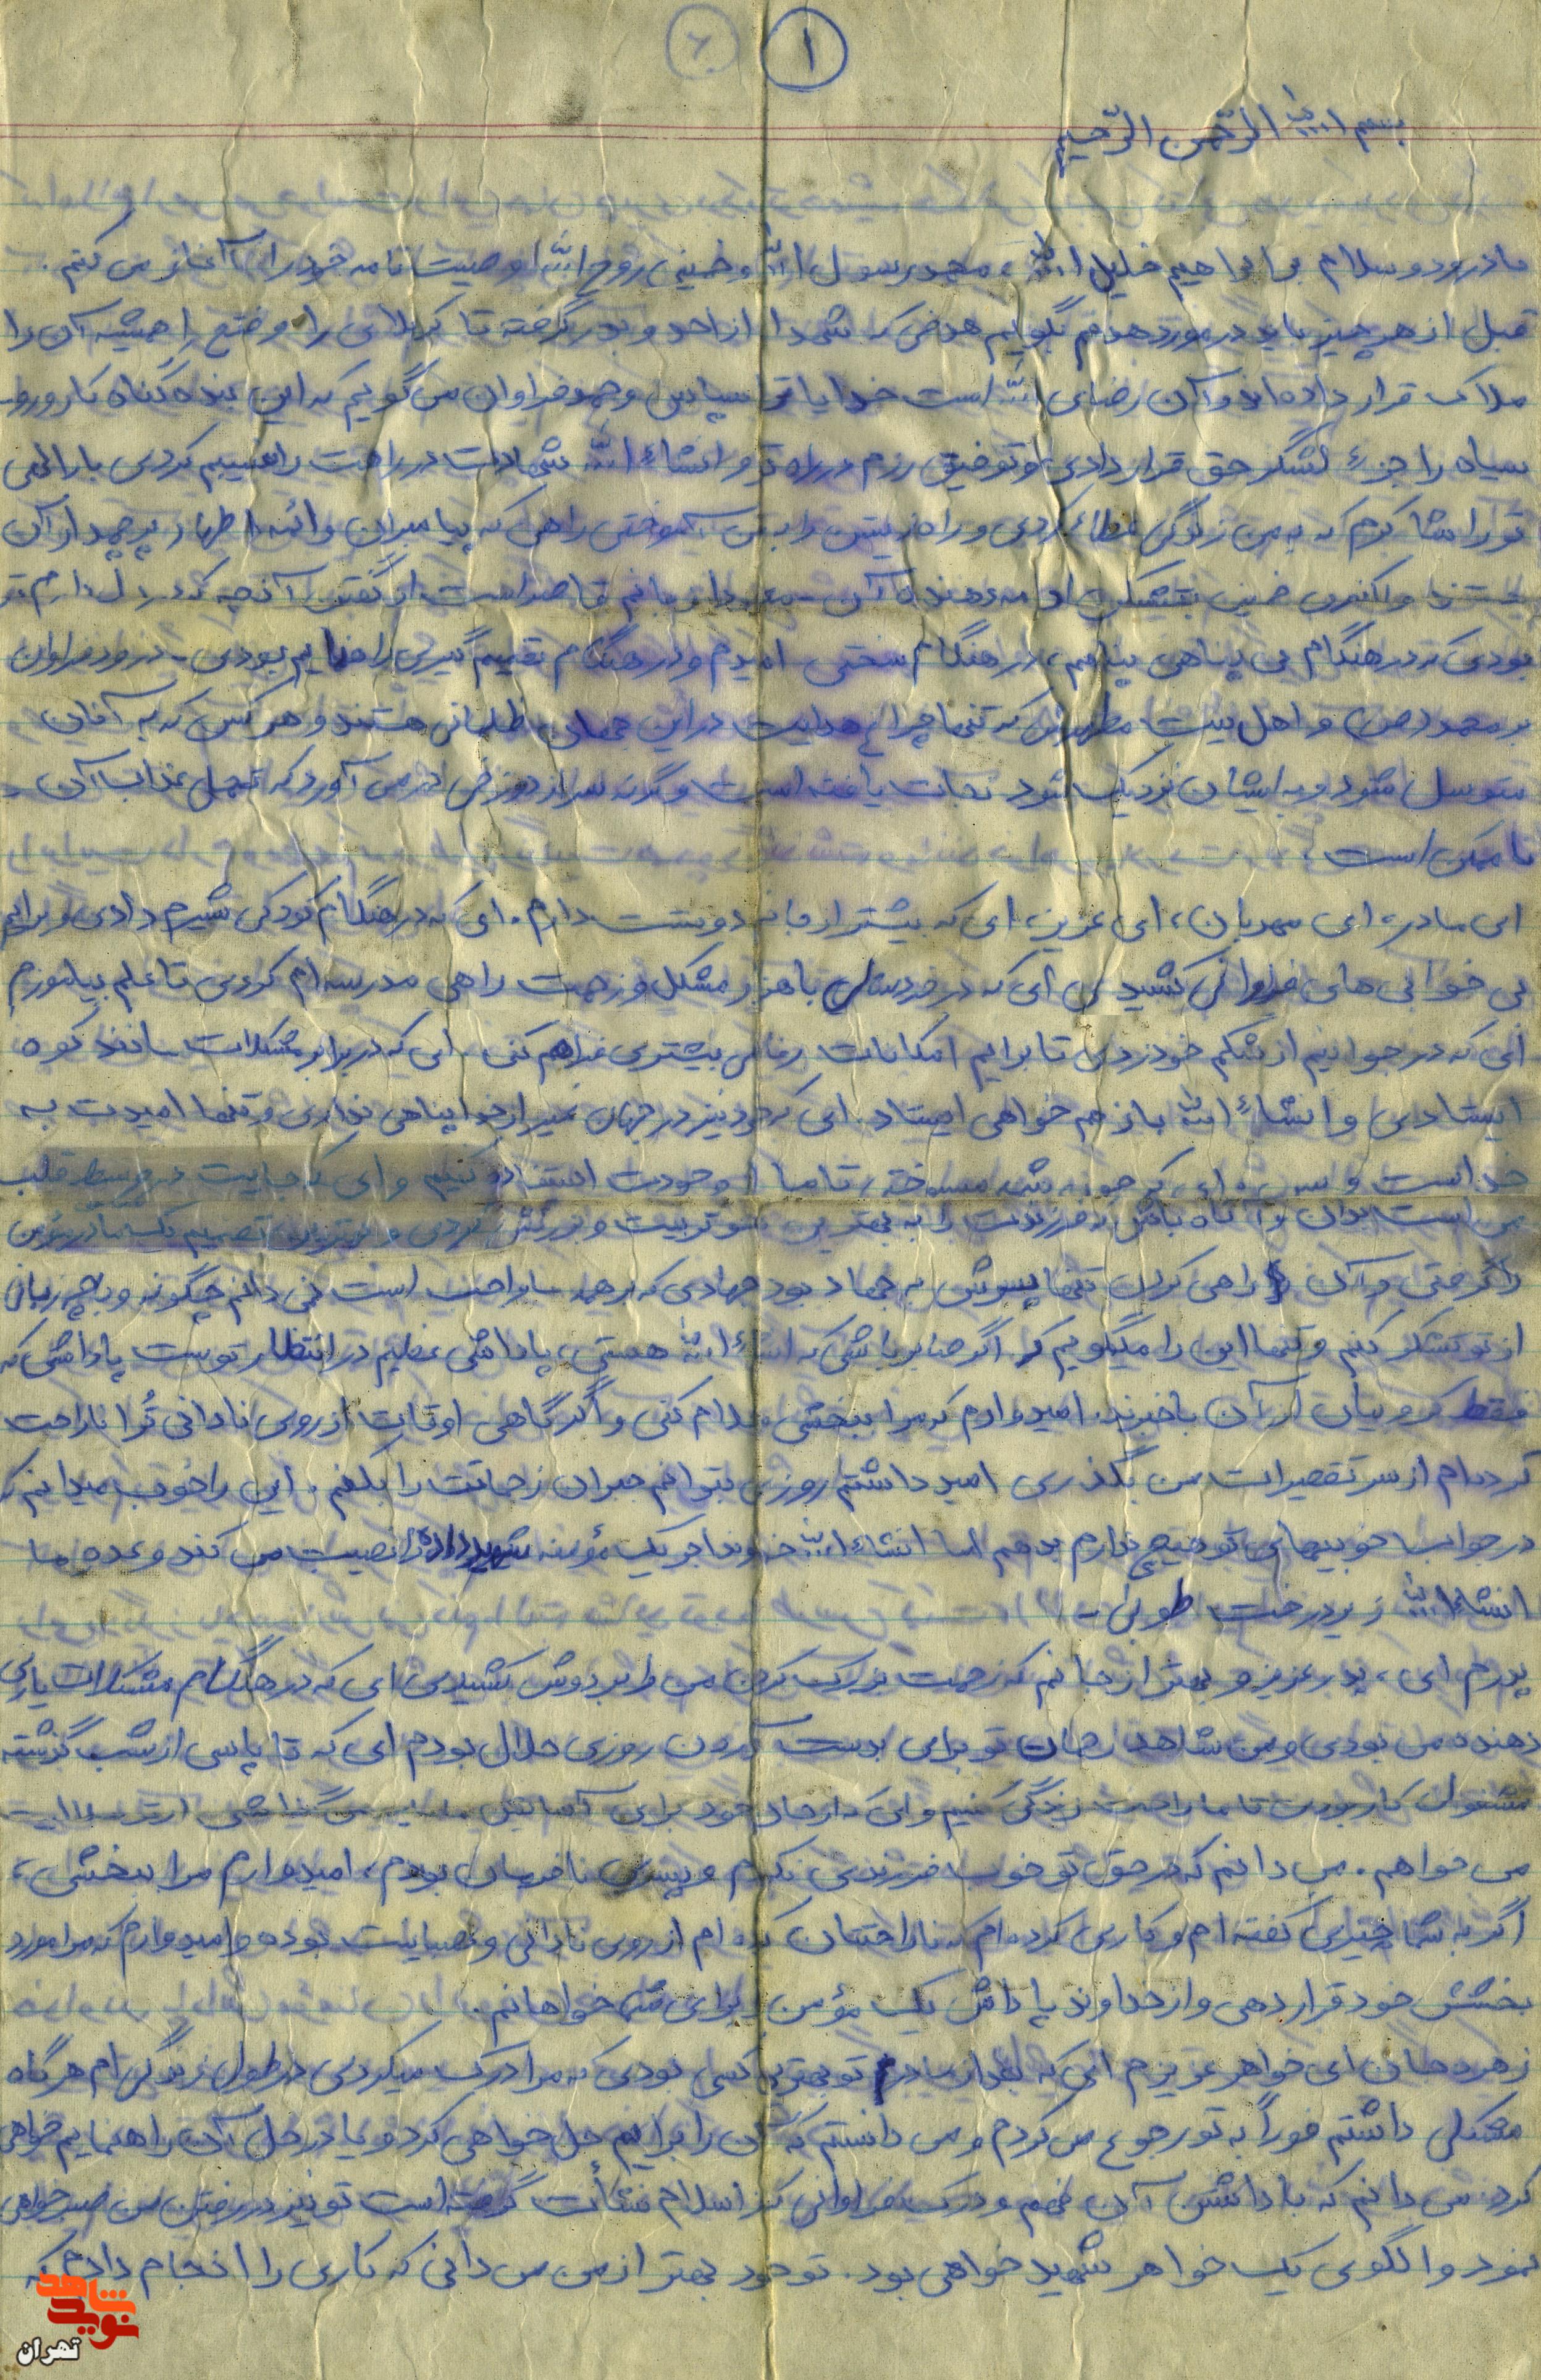 ۱
۲
بسم الله الرّحمن الرّحیم
با درود و سلام بر ابراهیم خلیل الله، محمد رسول الله و خمینی روح الله وصیت نامه خود را آغاز می کنم.
قبل از هر چیز باید در مورد هدفم بگویم هدفی که شهدا از احد و بدر گرفته تا کربلای را و فتح را همیشه آن را
ملاک قرار داده اند و آن رضای الله است خدایا تو را سپاس و حمد فراوان می گویم که این بنده گناه کار و رو
سیاه را جزء لشگر حق قرار دادی و توفیق رزم در راه تو و انشاء الله شهادت در راهت را نصیبم کردی بارالهی
تو را شاکرم که به من زندگی عطاء کردی و راه زیستن را به من آموختی راهی که پیامبران و ائمه اطهار پرچمدار آن
هستند و اکنون خمینی بت شکن ادامه دهنده آن معبودا زبانم قاصر است از گفتن آنچه که در دل دارم تو
بودی که در هنگام بی پناهی پناهم، در هنگام سختی امیدم و در هنگام تصمیم گیری راهنمایم بودی - درود فراوان
بر محمد (ص) و اهل بیت مطهرش که تنها چراغ هدایت در این جهان ظلمانی هستند و هر کس که به آنان
متوسل شود و به ایشان نزدیک شود نجات یافته است و گرنه سر از دوزخی در می آورد که تحمل عذاب آن
ناممکن است.
ای مادر، ای مهربان، ای عزیز، ای که بیشتر از جانم دوستت دارم. ای که در هنگام کودکی شیرم دادی و برایم
بی خوابی های فراوانی کشیدی ای که در خردسالی با هزار مشکل و زحمت راهی مدرسه ام کردی تا علم بیاموزم
ای که در جوانیم از شکم خود زدی تا برایم امکانات رفاهی بیشتری فراهم کنی. ای که در برابر مشکلات مانند کوه
ایستادی و انشاء الله باز هم خواهی ایستاد. ای که خود نیز در جهان غیر از خدا پناهی نداری و تنها امیدت به
خداست و بس، ای که چون شمع سوخته، تا ما از وجودت استفاده کنیم و ای که جایت در وسط قلب
من است بدان و آگاه باش که فرزندت را به بهترین نحو تربیت و بزرگش کردی و بهترین تصمیم یک مادر مؤمن
را گرفتی و آن راهی کردن تنها پسرش به جهاد بود جهادی که بر همه ما واجب است نمی دانم چگونه و با چه زبانی
از تو تشکر کنم و تنها این را میگویم که اگر صابر باشی که انشاء الله هستی، پاداشی عظیم در انتظار توست پاداشی که
فقط کروبیان از آن باخبرند. امیدوارم که مرا ببخشی حلالم کنی و اگر گاهی اوقات از روی نادانی تُرا ناراحت
کرده ام از سر تقصیرات من بگذری امید داشتم روزی بتوانم جبران زحماتت را بکنم. این را خوب میدانم که
در جواب خوبیهایت توضیحی ندارم بدهم اما انشاء الله خداوند اجر یک مؤمنه شهید داده را نصیبت می کند وعده ما
انشاء الله زیر درخت طوبی -
پدرم ای، پدر عزیز و بهتر از جانم که زحمت بزرگ کردن من را بر دوش کشیدی ای که در هنگام مشکلات یاری
دهنده من بودی و من شاهد زحمات تو برای بدست آوردن روزی حلال بودم ای که تا پاسی از شب گذشته
مشغول کار بودی تا ما راحت زندگی کنیم و ای که از جان خود برای آسایش ما
می خواهم. می دانم که در حق تو خوب فرزندی نکردم و پسری نافرمان بودم، امیدوارم مرا ببخشی،
اگر به شما چیزی گفته ام و کاری کرده ام که ناراحتتان کرده ام از روی نادانی و عصبانیت بوده و امیدوارم که مرا مورد
بخشش خود قرار دهی و از خداوند پاداش یک مؤمن را برای شما خواهانم.
زهره جان ای خواهر عزیزم ای که بعد از مادر تو بهترین کسی بودی که مرا درک میکردی در طول زندگی ام هر گاه
مشکلی داشتم فوراً به تو رجوع می کردم و می دانستم که آن را برایم حل خواهی کرد و یا در حل آن راهنمایم خواهی
کرد می دانم که با داشتن آن فهم و درک فراوانی که از اسلام نشأت گرفته است تو نیز در رفتن من صبر خواهی
نمود و الگوی یک خواهر شهید خواهی بود. تو خود بهتر از من می دانی که کاری را انجام دادم که
نوید شاهد
تهران